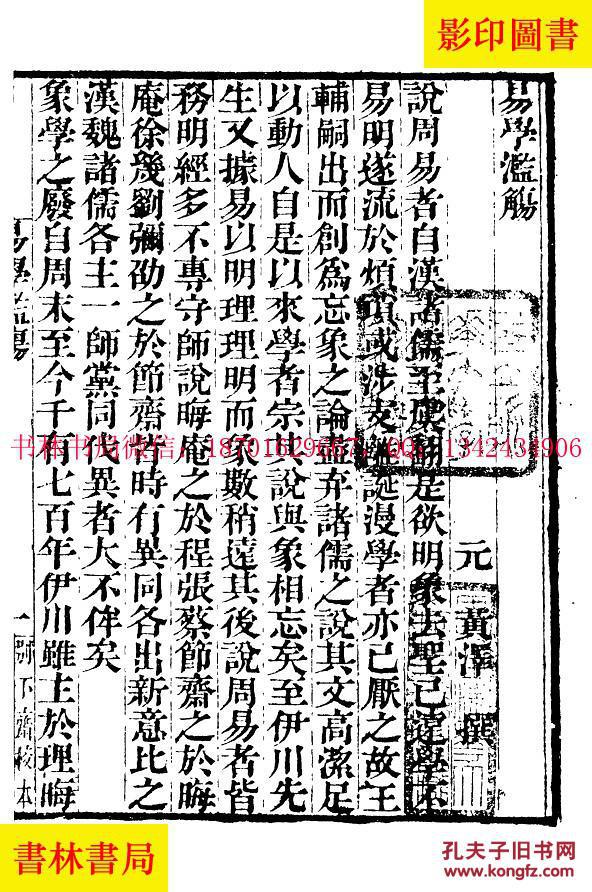 影印圖書
易學濫觴
元 黃澤 撰
說周易者自漢諸儒至虞翻是欲明象去聖已遠學不
易明遂流於煩瑣或涉支離誕漫學者亦已厭之故王
輔嗣出而創為忘象之論盡弃諸儒之說其文高潔足
以動人自是以來學者宗其說與象相忘矣至伊川先
生又據易以明理理明而象數稍遠其後說周易者皆
務明經多不專守師說晦庵之於程張蔡節齋之於晦
庵徐幾劉彌劭之於節齋皆時有異同各出新意比之
漢魏諸儒各主一師黨同伐異者大不侔矣
象學之廢自周末至今千有七百年伊川雖主於理晦
易學濫觴
一
別下齋校本
书林书局微信：18701629667 QQ：1342434906
書林書局
孔夫子旧书网
www.kongfz.com